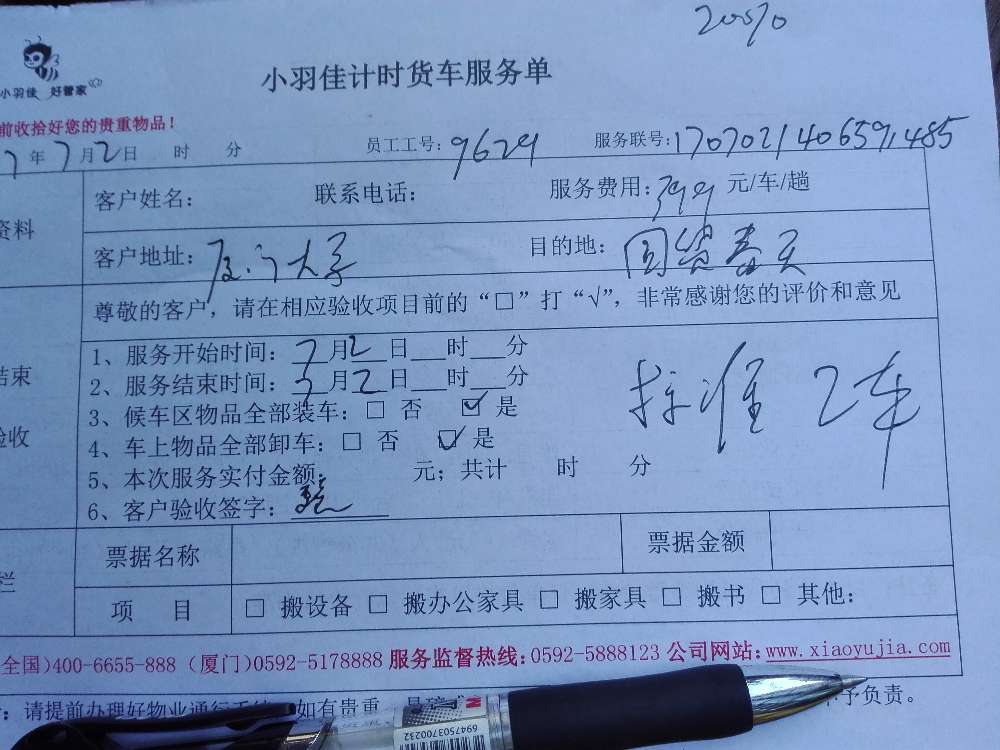 20070
小羽佳 好管家
小羽佳计时货车服务单
前收拾好您的贵重物品！
7年7月2日 时 分 员工工号：9629 服务联号：170702140659485
资料
客户姓名： 联系电话： 服务费用：399元/车/趟
客户地址：厦门大学 目的地：国贸春天
尊敬的客户，请在相应验收项目前的“□”打“√”，非常感谢您的评价和意见
结束
验收
1、服务开始时间：7月2日___时___分
2、服务结束时间：7月2日___时___分
标准2车
3、候车区物品全部装车：□ 否 ☑ 是
4、车上物品全部卸车：□ 否 ☑ 是
5、本次服务实付金额： 元；共计 时 分
6、客户验收签字：
栏
票据名称 票据金额
项 目 □ 搬设备 □ 搬办公家具 □ 搬家具 □ 搬书 □ 其他：
全国)400-6655-888 (厦门)0592-5178888 服务监督热线：0592-5888123 公司网站：www.xiaoyujia.com
：请提前办理好物业通行手续 如有贵重 易碎 不予负责。
6947503700232